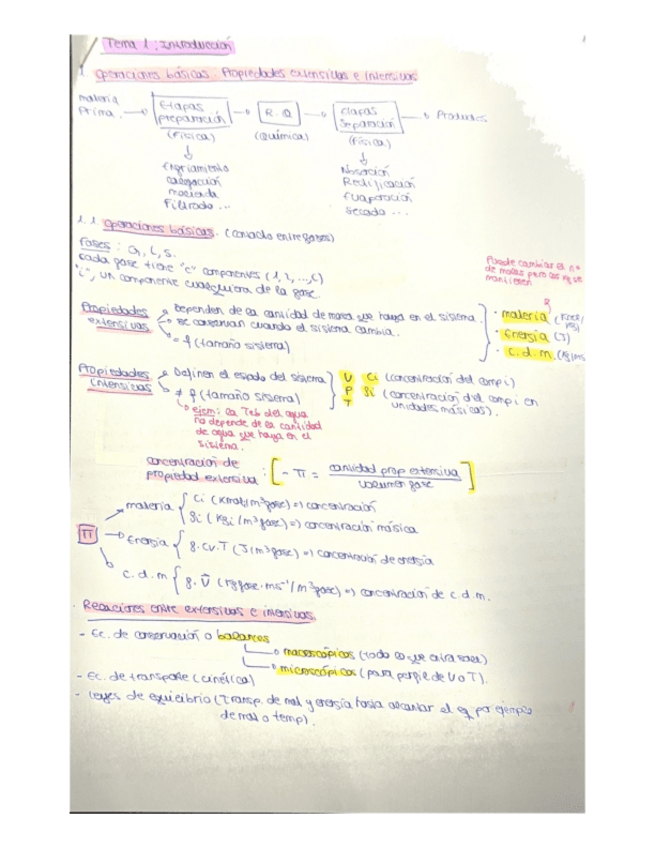 Tema 1: Introducción
1. Operaciones básicas. Propiedades extensivas e intensivas
materia prima → Etapas preparación → R.Q → Etapas Separación → Productos
(Física) (Química) (Física)
Enfriamiento
Calefacción
Molienda
Filtrado...
Absorción
Rectificación
Evaporación
Secado...
1.1. Operaciones básicas. (contacto entre fases)
Fases: G, L, S.
Cada fase tiene "c" componentes (1, 2, ..., c)
"i", un componente cualquiera de la fase.
Puede cambiar el nº
de moles pero los kg se
mantienen
Propiedades extensivas
Dependen de la cantidad de masa que haya en el sistema.
Se conservan cuando el sistema cambia.
= f (tamaño sistema)
· materia
· Energía (J)
· c.d.m.
Propiedades intensivas
Definen el estado del sistema
≠ f (tamaño sistema)
ejem: la Teb del agua
no depende de la cantidad
de agua que haya en el
sistema.
V
P
T
Ci (concentración del comp i)
ρi (concentración del comp i en
unidades másicas).
concentración de
propiedad extensiva : [ - π = cantidad prop extensiva / volumen fase ]
π
materia { Ci (Kmol i/m³ fase) => concentración
ρi (Kg i/m³ fase) => concentración másica
Energía { ρ·Cv·T (J/m³ fase) => concentración de energía
c.d.m { ρ·v̄ (Kg fase·ms⁻¹/m³ fase) => concentración de c.d.m.
· Relaciones entre extensivas e intensivas.
- Ec. de conservación o balances
macroscópicos (todo lo que entra sale)
microscópicos (para perfil de V o T).
- Ec. de transporte (cinética)
- Leyes de equilibrio (Transp. de mat y energía hasta alcanzar el eq por ejemplo
de mat o temp).